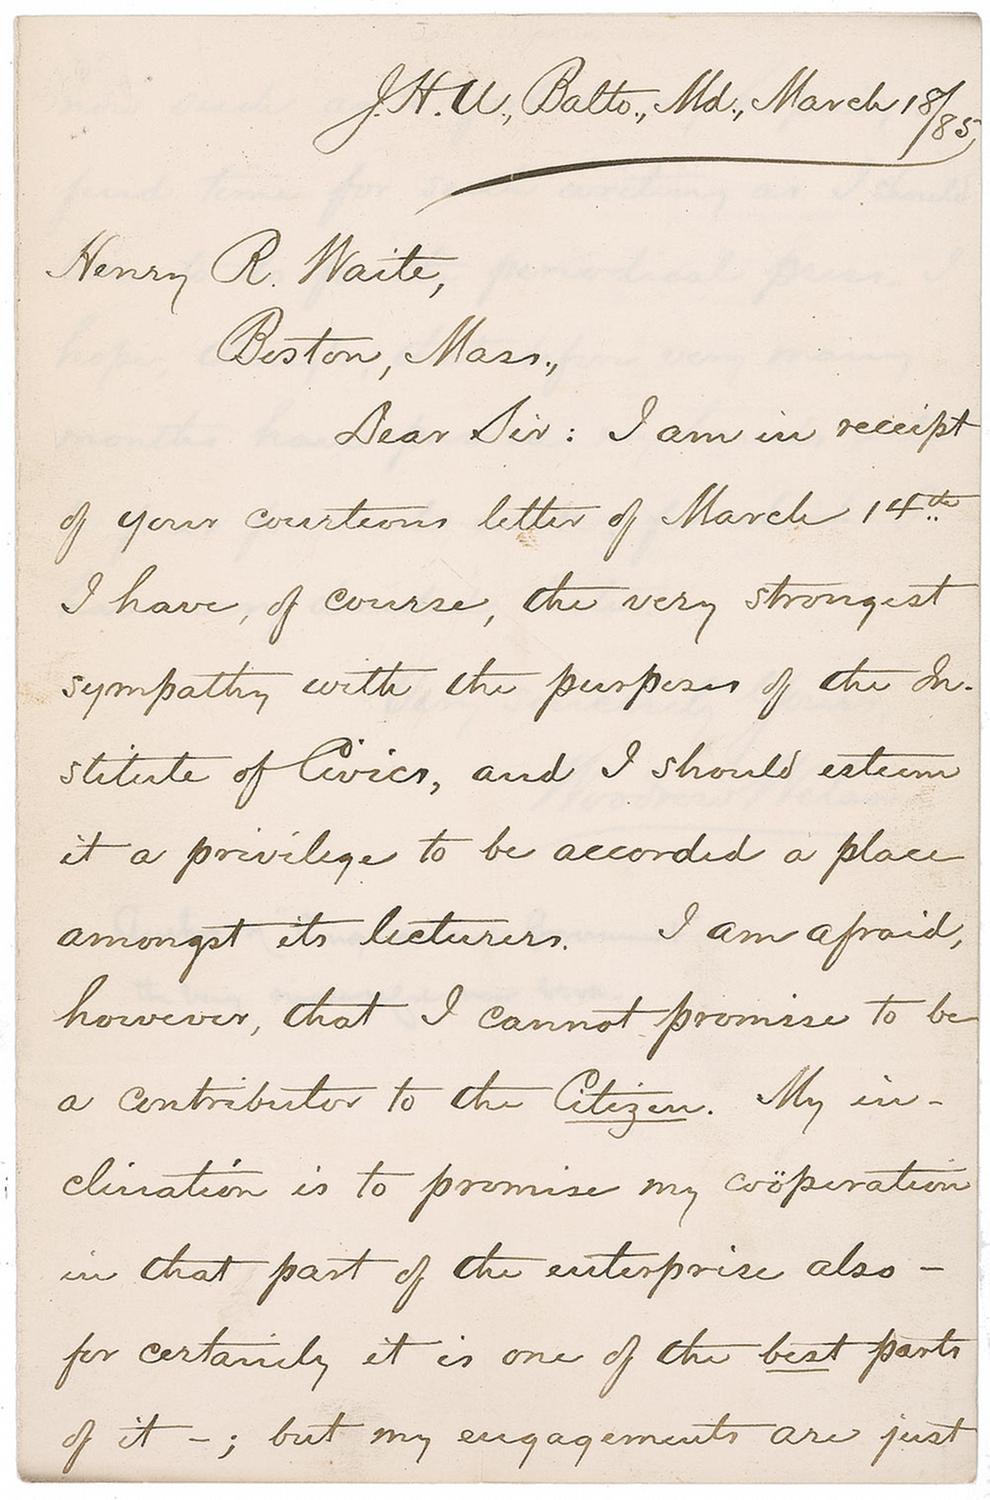 J.H.U., Balto., Md., March 18/85
Henry R. Waite,
Boston, Mass.,
Dear Sir: I am in receipt
of your courteous letter of March 14th.
I have, of course, the very strongest
sympathy with the purposes of the In-
stitute of Civics, and I should esteem
it a privilege to be accorded a place
amongst its lecturers. I am afraid,
however, that I cannot promise to be
a contributor to the Citizen. My in-
clination is to promise my coöperation
in that part of the enterprise also -
for certainly it is one of the best parts
of it - ; but my engagements are just